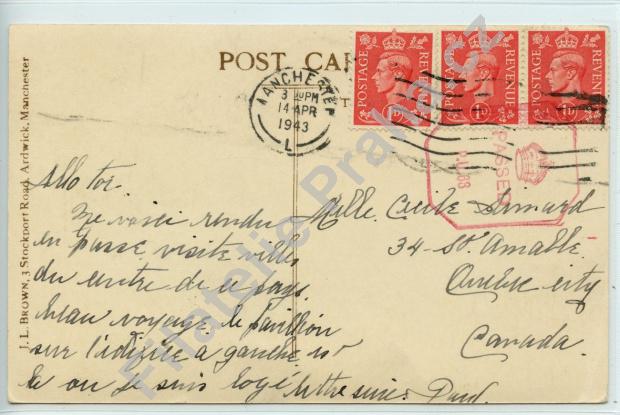 POST CAR
J. L. BROWN, 3 Stockport Road, Ardwick, Manchester
MANCHESTER
3 PM
14 APR
1943
L
POSTAGE REVENUE
1D
POSTAGE REVENUE
1D
POSTAGE REVENUE
1D
PASSED
P.188
Allo toi.
Me voici rendu
en passe visite ville
du centre de ce pays.
beau voyage. le pavillon
sur l'édifice a gauche
là ou je suis logé lettre suivre Paul
Mlle. Cecile Simard
34 - St. Amable.
Quebec city
Canada.
Filatelie Praha.cz